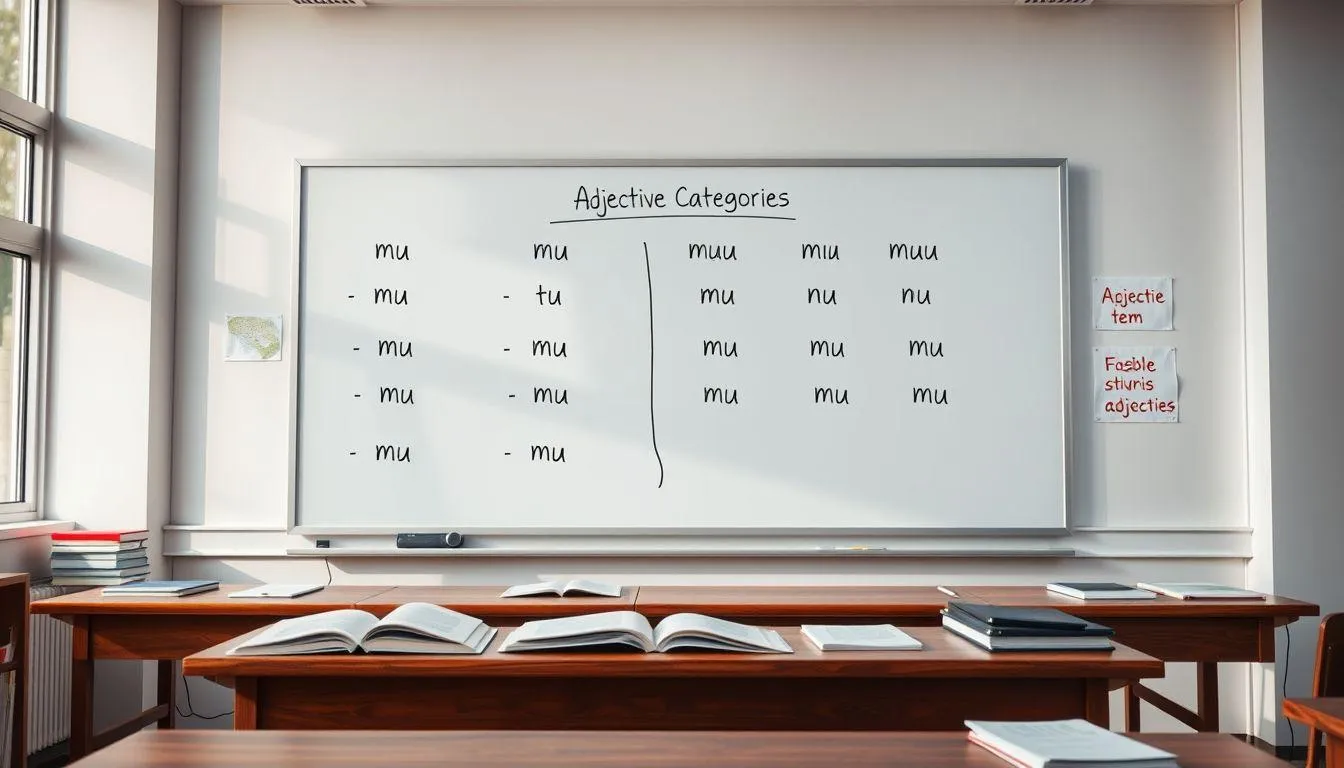 Adjective Categories
mu mu muu mıu muu
- mu - tu mu nu nu
- mu - mu mu mu mu
- mu - mu mu mu mu
- mu - mu
Apjectie
tem
Fasble
stivnis
adjecties